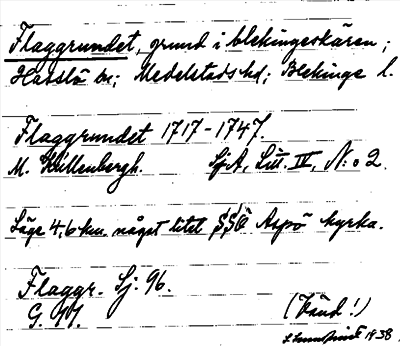 Flaggrundet, grund i blekingeskären;
Hasslö sn; Medelstads hd; Blekinge l.
Flaggrundet 1717-1747.
M. Källenbergh. Sj.A, Litt. IV, N:o 2.
Läge 4,6 km. något litet SSÖ Aspö kyrka.
Flaggr. Sj: 96.
G. W. (Känd!)
1938